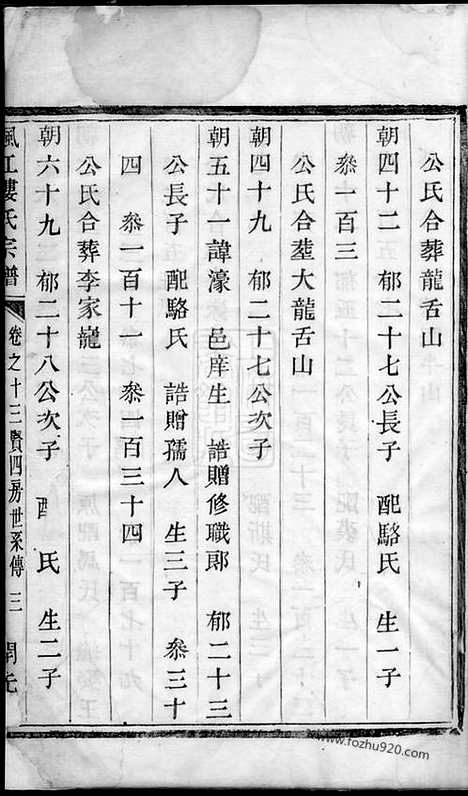 公氏合葬龍舌山
朝四十二 郁二十七公長子 配駱氏 生一子
叅一百三
公氏合塟大龍舌山
朝四十九 郁二十七公次子
朝五十一諱濠 邑庠生 誥贈修職郎 郁二十三
公長子 配駱氏 誥贈孺人 生三子 叅三十
四 叅一百十一 叅一百三十四
公氏合葬李家
朝六十九 郁二十八公次子 配 氏 生二子
楓江婁氏宗譜 卷之十三賢四房世系傳 三
www.fozhu920.com